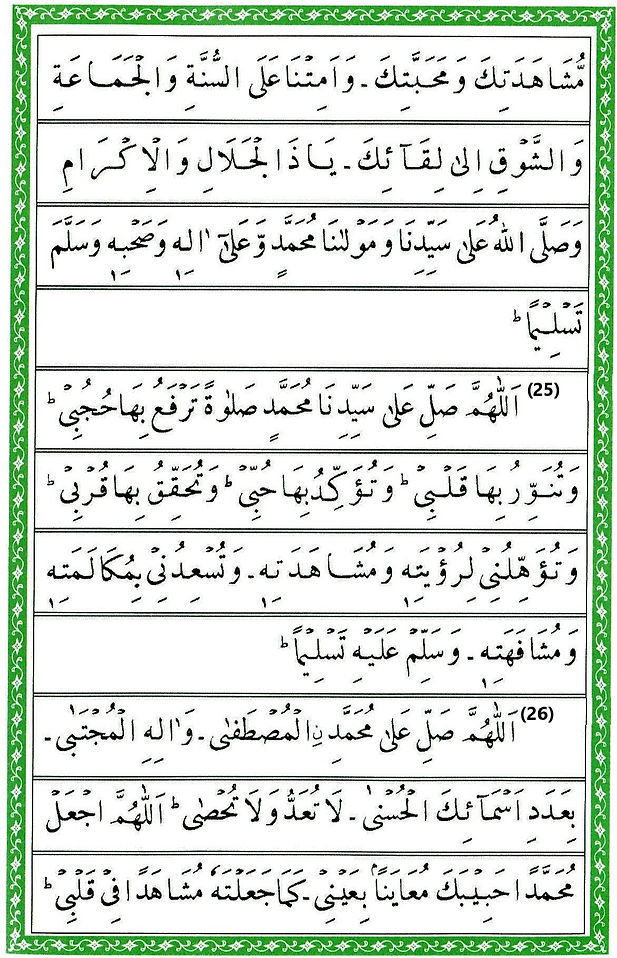 مُّشَاهَدَتِكَ وَمَحَبَّتِكَ۔ وَاَمِتْنَا عَلَی السُّنَّةِ وَالْجَمَاعَةِ
وَالشَّوْقِ اِلٰی لِقَآئِكَ۔ يَاذَا الْجَلَالِ وَالْاِكْرَامِ
وَصَلَّی اللهُ عَلٰی سَيِّدِنَا وَمَوْلٰنَا مُحَمَّدٍ وَّعَلٰٓی اٰلِهٖ وَصَحْبِهٖ وَسَلَّمَ
تَسْلِيْمًا ؕ
(25) اَللّٰهُمَّ صَلِّ عَلٰی سَيِّدِنَا مُحَمَّدٍ صَلٰوةً تَرْفَعُ بِهَا حُجُبِيْ ؕ
وَتُنَوِّرُ بِهَا قَلْبِيْ ؕ وَتُؤَكِّدُ بِهَا حُبِّيْ ؕ وَتُحَقِّقُ بِهَا قُرْبِيْ ؕ
وَتُؤَهِّلُنِيْ لِرُؤْيَتِهٖ وَمُشَاهَدَتِهٖ۔ وَتُسْعِدُنِيْ بِمُكَالَمَتِهٖ
وَمُشَافَهَتِهٖ۔ وَسَلِّمْ عَلَيْهِ تَسْلِيْمًا ؕ
(26) اَللّٰهُمَّ صَلِّ عَلٰی مُحَمَّدِ نِ الْمُصْطَفٰی۔ وَاٰلِهِ الْمُجْتَبٰی۔
بِعَدَدِ اَسْمَآئِكَ الْحُسْنٰی۔ لَا تُعَدُّ وَلَا تُحْصٰی ؕ اَللّٰهُمَّ اجْعَلْ
مُحَمَّدًا حَبِيْبَكَ مُعَايَنًا بِعَيْنِيْ۔ كَمَا جَعَلْتَهٗ مُشَاهَدًا فِيْ قَلْبِيْ ؕ